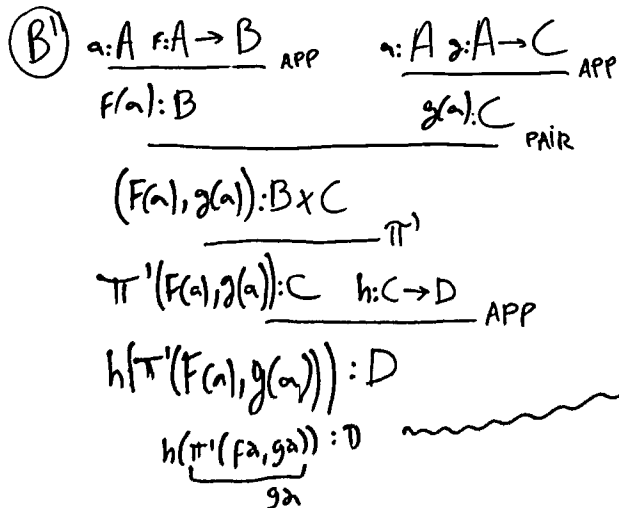 B'' a:A F:A→B APP a:A g:A→C APP
F(a):B g(a):C PAIR
(F(a), g(a)):B×C π'
π'(F(a),g(a)):C h:C→D APP
h(π'(F(a),g(a))):D
h(π'(fa,ga)):D
ga